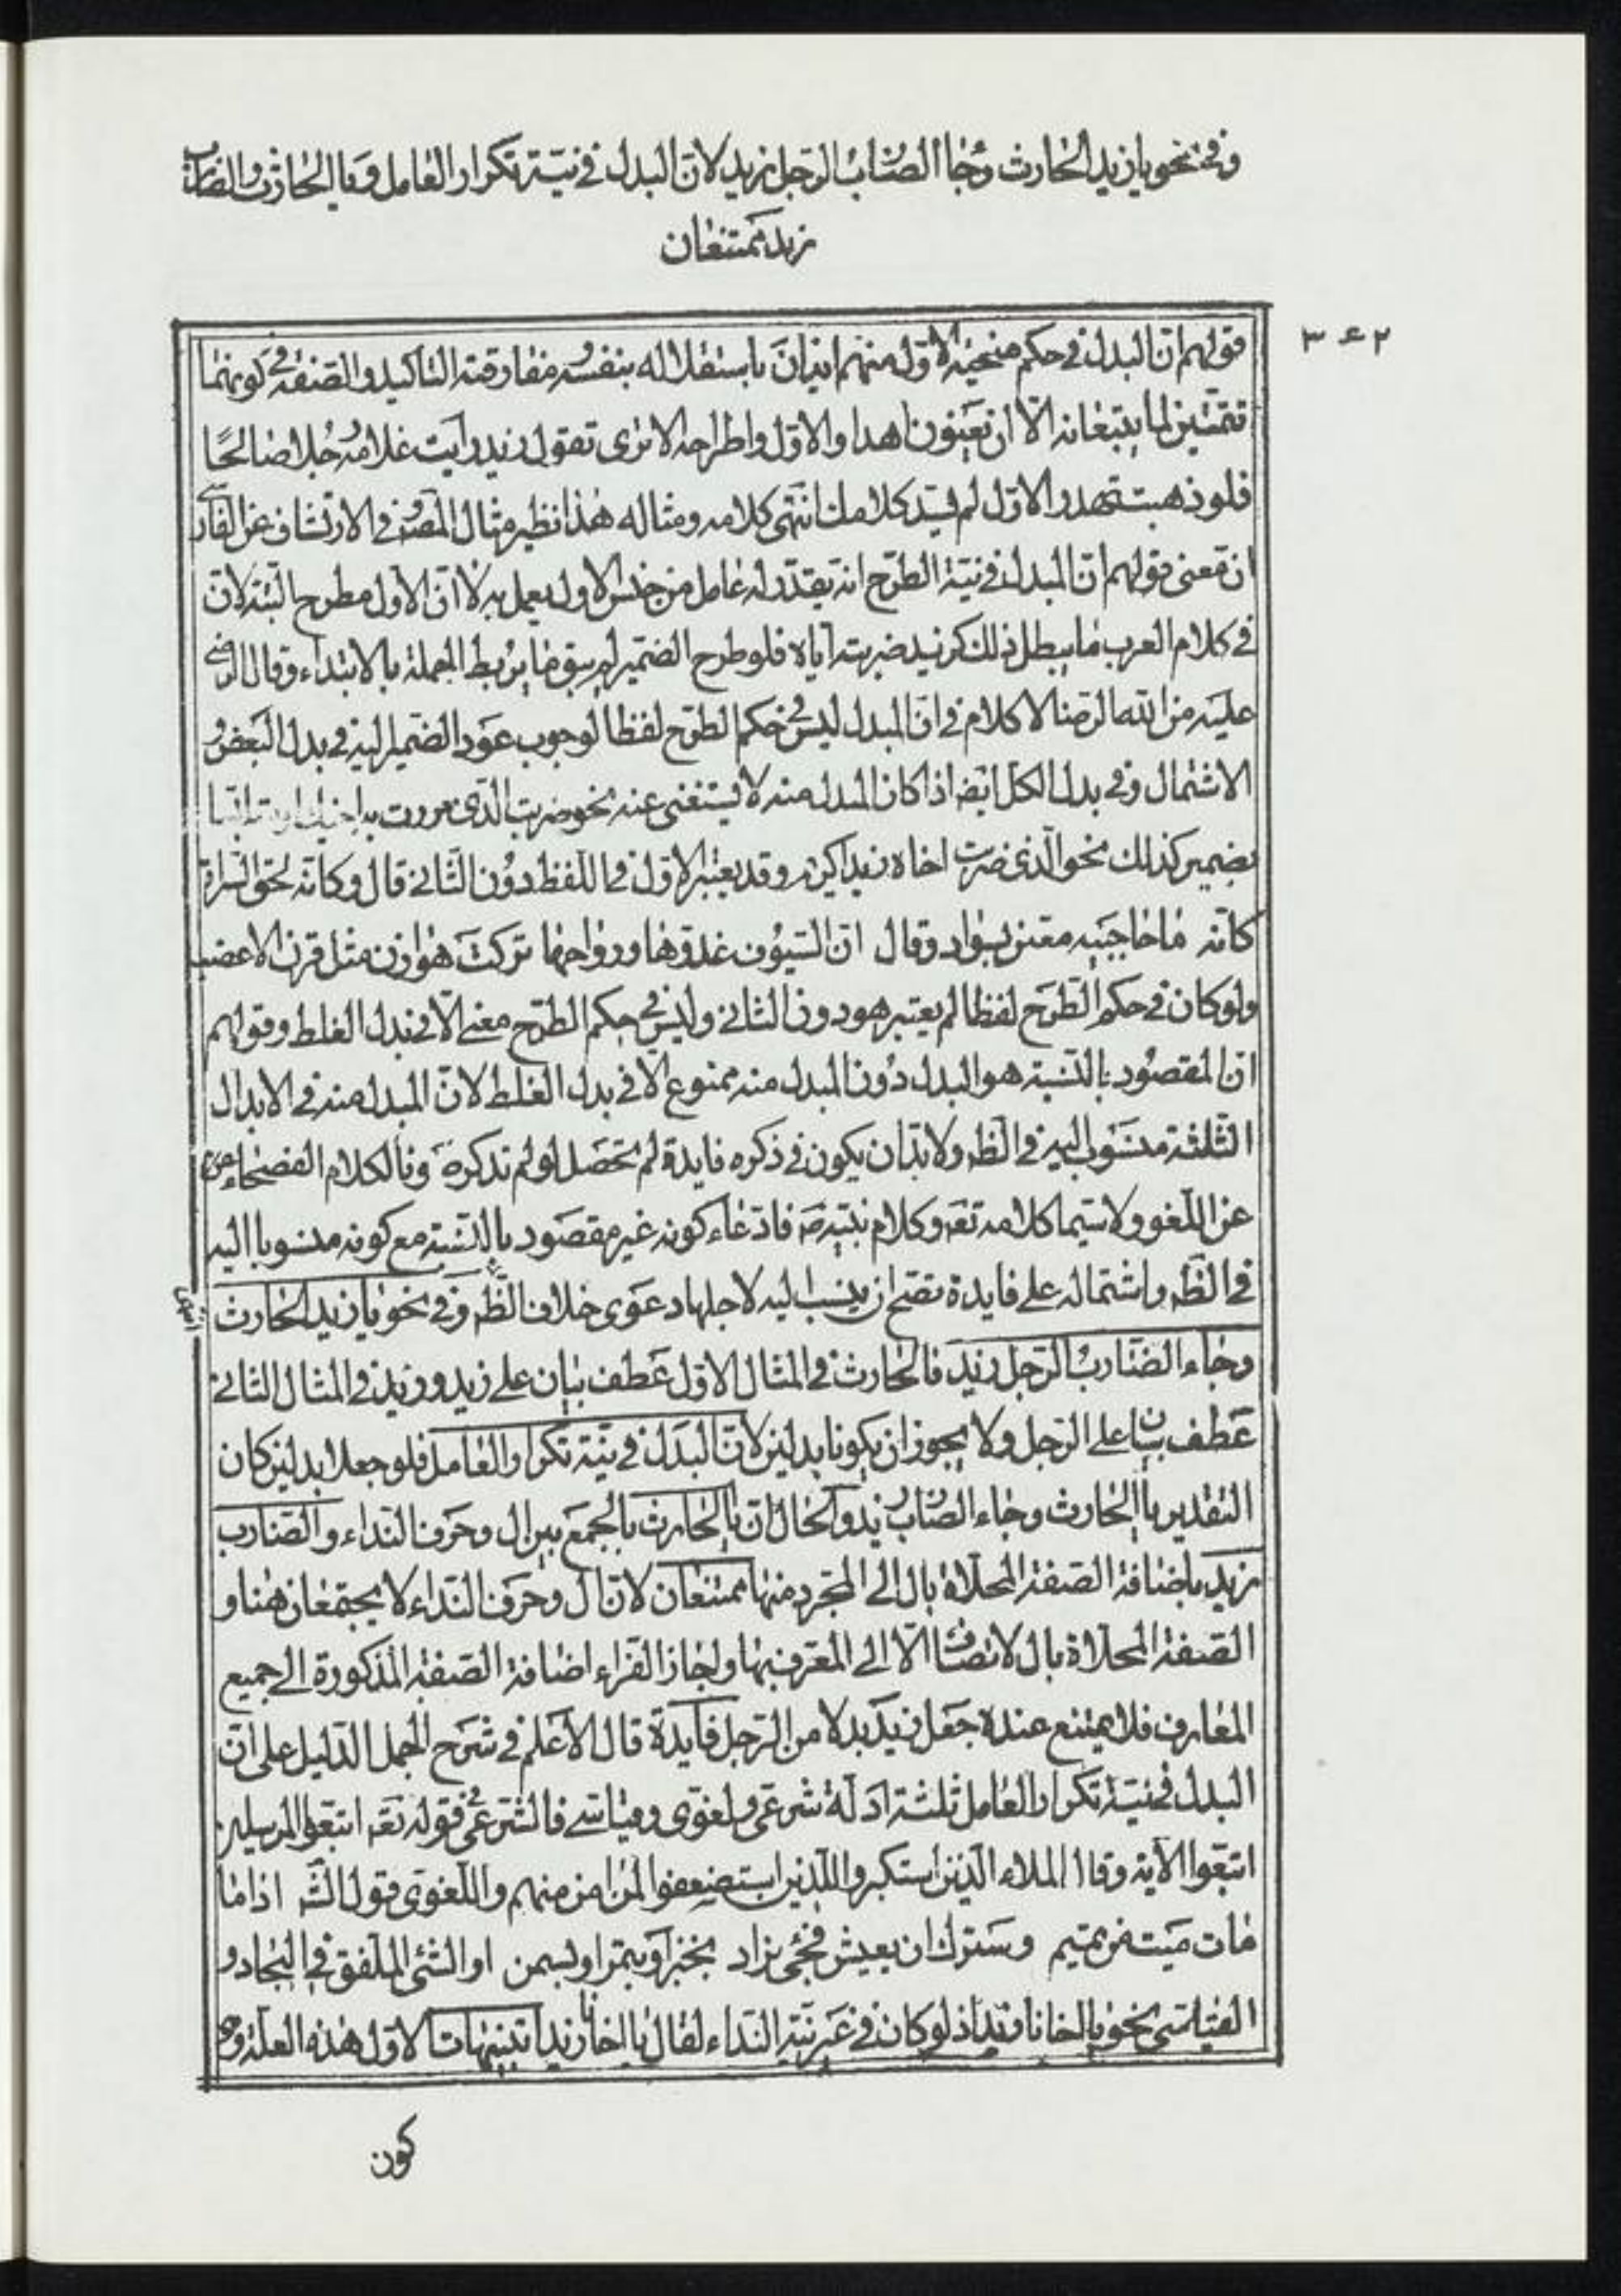 وفي نحو يا زيد الحارث وجاء الضارب الرجل زيد لان البدل في نية تكرار العامل ويا الحارث والضارب
زيد ممتنعان
٣٤٢
قولهم ان البدل في حكم تنحية الاول منهم ايذان باستقلاله بنفسه ومفارقته التاكيد والصفة في كونهما
تتمتين لما يتبعانه الا ان يعنون اهدار الاول واطراحه الا ترى تقول زيد رايت غلامه رجلا صالحا
فلو ذهبت تهدر الاول لم يسد كلامك انتهى كلامه ومثاله هذا نظير مثال المصنف في الارتشاف عن
ان معنى قولهم ان المبدل في نية الطرح انه يقدر له عامل من جنس الاول يعمل به لا ان الاول مطروح البتة لان
في كلام العرب ما يبطل ذلك كزيد ضربته اياه فلو طرح الضمير لم يبق ما يربط الجملة بالابتداء وقال الرضي
عليه من الله الرضا لا كلام في ان المبدل ليس في حكم الطرح لفظا لوجوب عود الضمير اليه في بدل البعض و
الاشتمال وفي بدل الكل ايضا اذا كان المبدل منه لا يستغنى عنه نحو ضربت الذي مررت به اخيك او ملتبسا
بضمير كذلك نحو الذي ضربت اخاه زيدا كريم وقد يعتبر الاول في اللفظ دون الثاني قال وكانه لهق السراة
كانه ما حاجبيه معين بسواد وقال ان السيوف غدوها ورواحها تركت هوازن مثل قرن الاعضب
ولو كان في حكم الطرح لفظا لم يعتبر هو دون الثاني وليس في حكم الطرح معنى الا في بدل الغلط وقولهم
ان المقصود بالنسبة هو البدل دون المبدل منه ممنوع الا في بدل الغلط لان المبدل منه في الابدال
الثلثة منسوب اليه في الظ ولا بد ان يكون في ذكره فايدة لم تحصل لو لم تذكره صونا لكلام الفصحاء
عن اللغو ولا سيما كلامه تعه وكلام نبيه ص فادعاء كونه غير مقصود بالنسبة مع كونه منسوبا اليه
في الظ واشتماله على فايدة تصح ان ينسب اليه لاجلها دعوى خلاف الظ وفي نحو يا زيد الحارث
وجاء الضارب الرجل زيد فالحارث في المثال الاول عطف بيان على زيد وزيد في المثال الثاني
عطف بيان على الرجل ولا يجوز ان يكونا بدلين لان البدل في نية تكرار العامل فلو جعلا بدلين كان
التقدير يا الحارث وجاء الضارب زيد والحال ان يا الحارث بالجمع بين ال وحرف النداء والضارب
زيد باضافة الصفة المحلاة بال الى المجرد منها ممتنعان لان ال وحرف النداء لا يجتمعان هنا و
الصفة المحلاة بال لا تضاف الا الى المعرف بها واجاز الفراء اضافة الصفة المذكورة الى جميع
المعارف فلا يمتنع عنده جعل زيد بدلا من الرجل فايدة قال الاعلم في شرح الجمل الدليل على ان
البدل في نية تكرار العامل ثلثة ادلة شرعي ولغوي وقياسي فالشرعي في قوله تعه اتبعوا المرسلين
اتبعوا الاية وقال الملاء الذين استكبروا للذين استضعفوا لمن امن منهم واللغوي قول الش اذا ما
مات ميت من تميم وسرك ان يعيش فجئ بزاد بخبز او بتمر او بسمن او الشئ الملفق في البجاد و
القياسي نحو يا اخانا زيد اذ لو كان في غير نية النداء لقال يا اخانا زيدا تنبيهات الاول هذه العلة وهي
كون